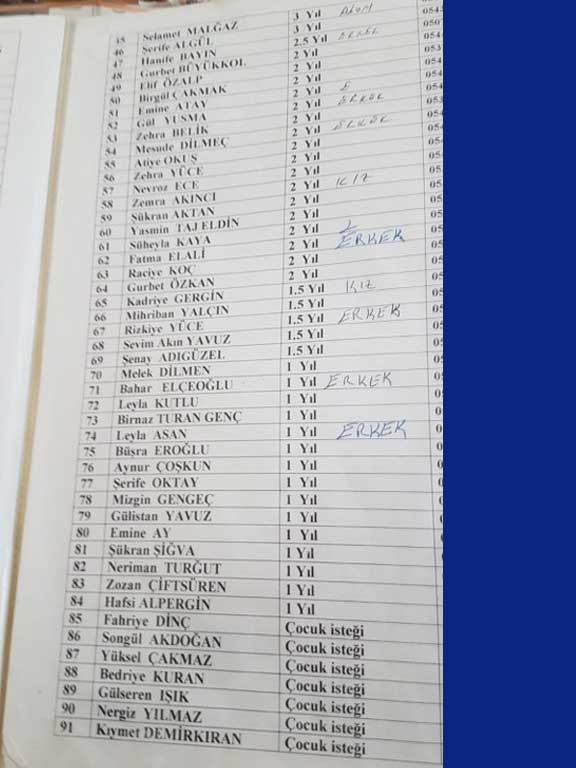 45 Selamet MALĞAZ 3 Yıl
46 Şerife ALGÜL 3 Yıl
47 Hanife BAYIN 2.5 Yıl
48 Gurbet BÜYÜKKOL 2 Yıl
49 Elif ÖZALP 2 Yıl
50 Birgül ÇAKMAK 2 Yıl
51 Emine ATAY 2 Yıl
52 Gül YUSMA 2 Yıl ERKEK
53 Zehra BELİK 2 Yıl
54 Mesude DİLMEÇ 2 Yıl ERKEK
55 Atiye OKUŞ 2 Yıl
56 Zehra YÜCE 2 Yıl
57 Nevroz ECE 2 Yıl
58 Zemra AKINCI 2 Yıl KIZ
59 Şükran AKTAN 2 Yıl
60 Yasmin TAJ ELDİN 2 Yıl
61 Süheyla KAYA 2 Yıl
62 Fatma ELALİ 2 Yıl ERKEK
63 Raciye KOÇ 2 Yıl
64 Gurbet ÖZKAN 2 Yıl
65 Kadriye GERGİN 1.5 Yıl KIZ
66 Mihriban YALÇIN 1.5 Yıl
67 Rizkiye YÜCE 1.5 Yıl ERKEK
68 Sevim Akın YAVUZ 1.5 Yıl
69 Şenay ADIGÜZEL 1.5 Yıl
70 Melek DİLMEN 1 Yıl
71 Bahar ELÇEOĞLU 1 Yıl ERKEK
72 Leyla KUTLU 1 Yıl
73 Birnaz TURAN GENÇ 1 Yıl
74 Leyla ASAN 1 Yıl ERKEK
75 Büşra EROĞLU 1 Yıl
76 Aynur ÇOŞKUN 1 Yıl
77 Şerife OKTAY 1 Yıl
78 Mizgin GENGEÇ 1 Yıl
79 Gülistan YAVUZ 1 Yıl
80 Emine AY 1 Yıl
81 Şükran ŞİĞVA 1 Yıl
82 Neriman TURĞUT 1 Yıl
83 Zozan ÇİFTSÜREN 1 Yıl
84 Hafsi ALPERGİN 1 Yıl
85 Fahriye DİNÇ Çocuk isteği
86 Songül AKDOĞAN Çocuk isteği
87 Yüksel ÇAKMAZ Çocuk isteği
88 Bedriye KURAN Çocuk isteği
89 Gülseren IŞIK Çocuk isteği
90 Nergiz YILMAZ Çocuk isteği
91 Kıymet DEMİRKIRAN Çocuk isteği